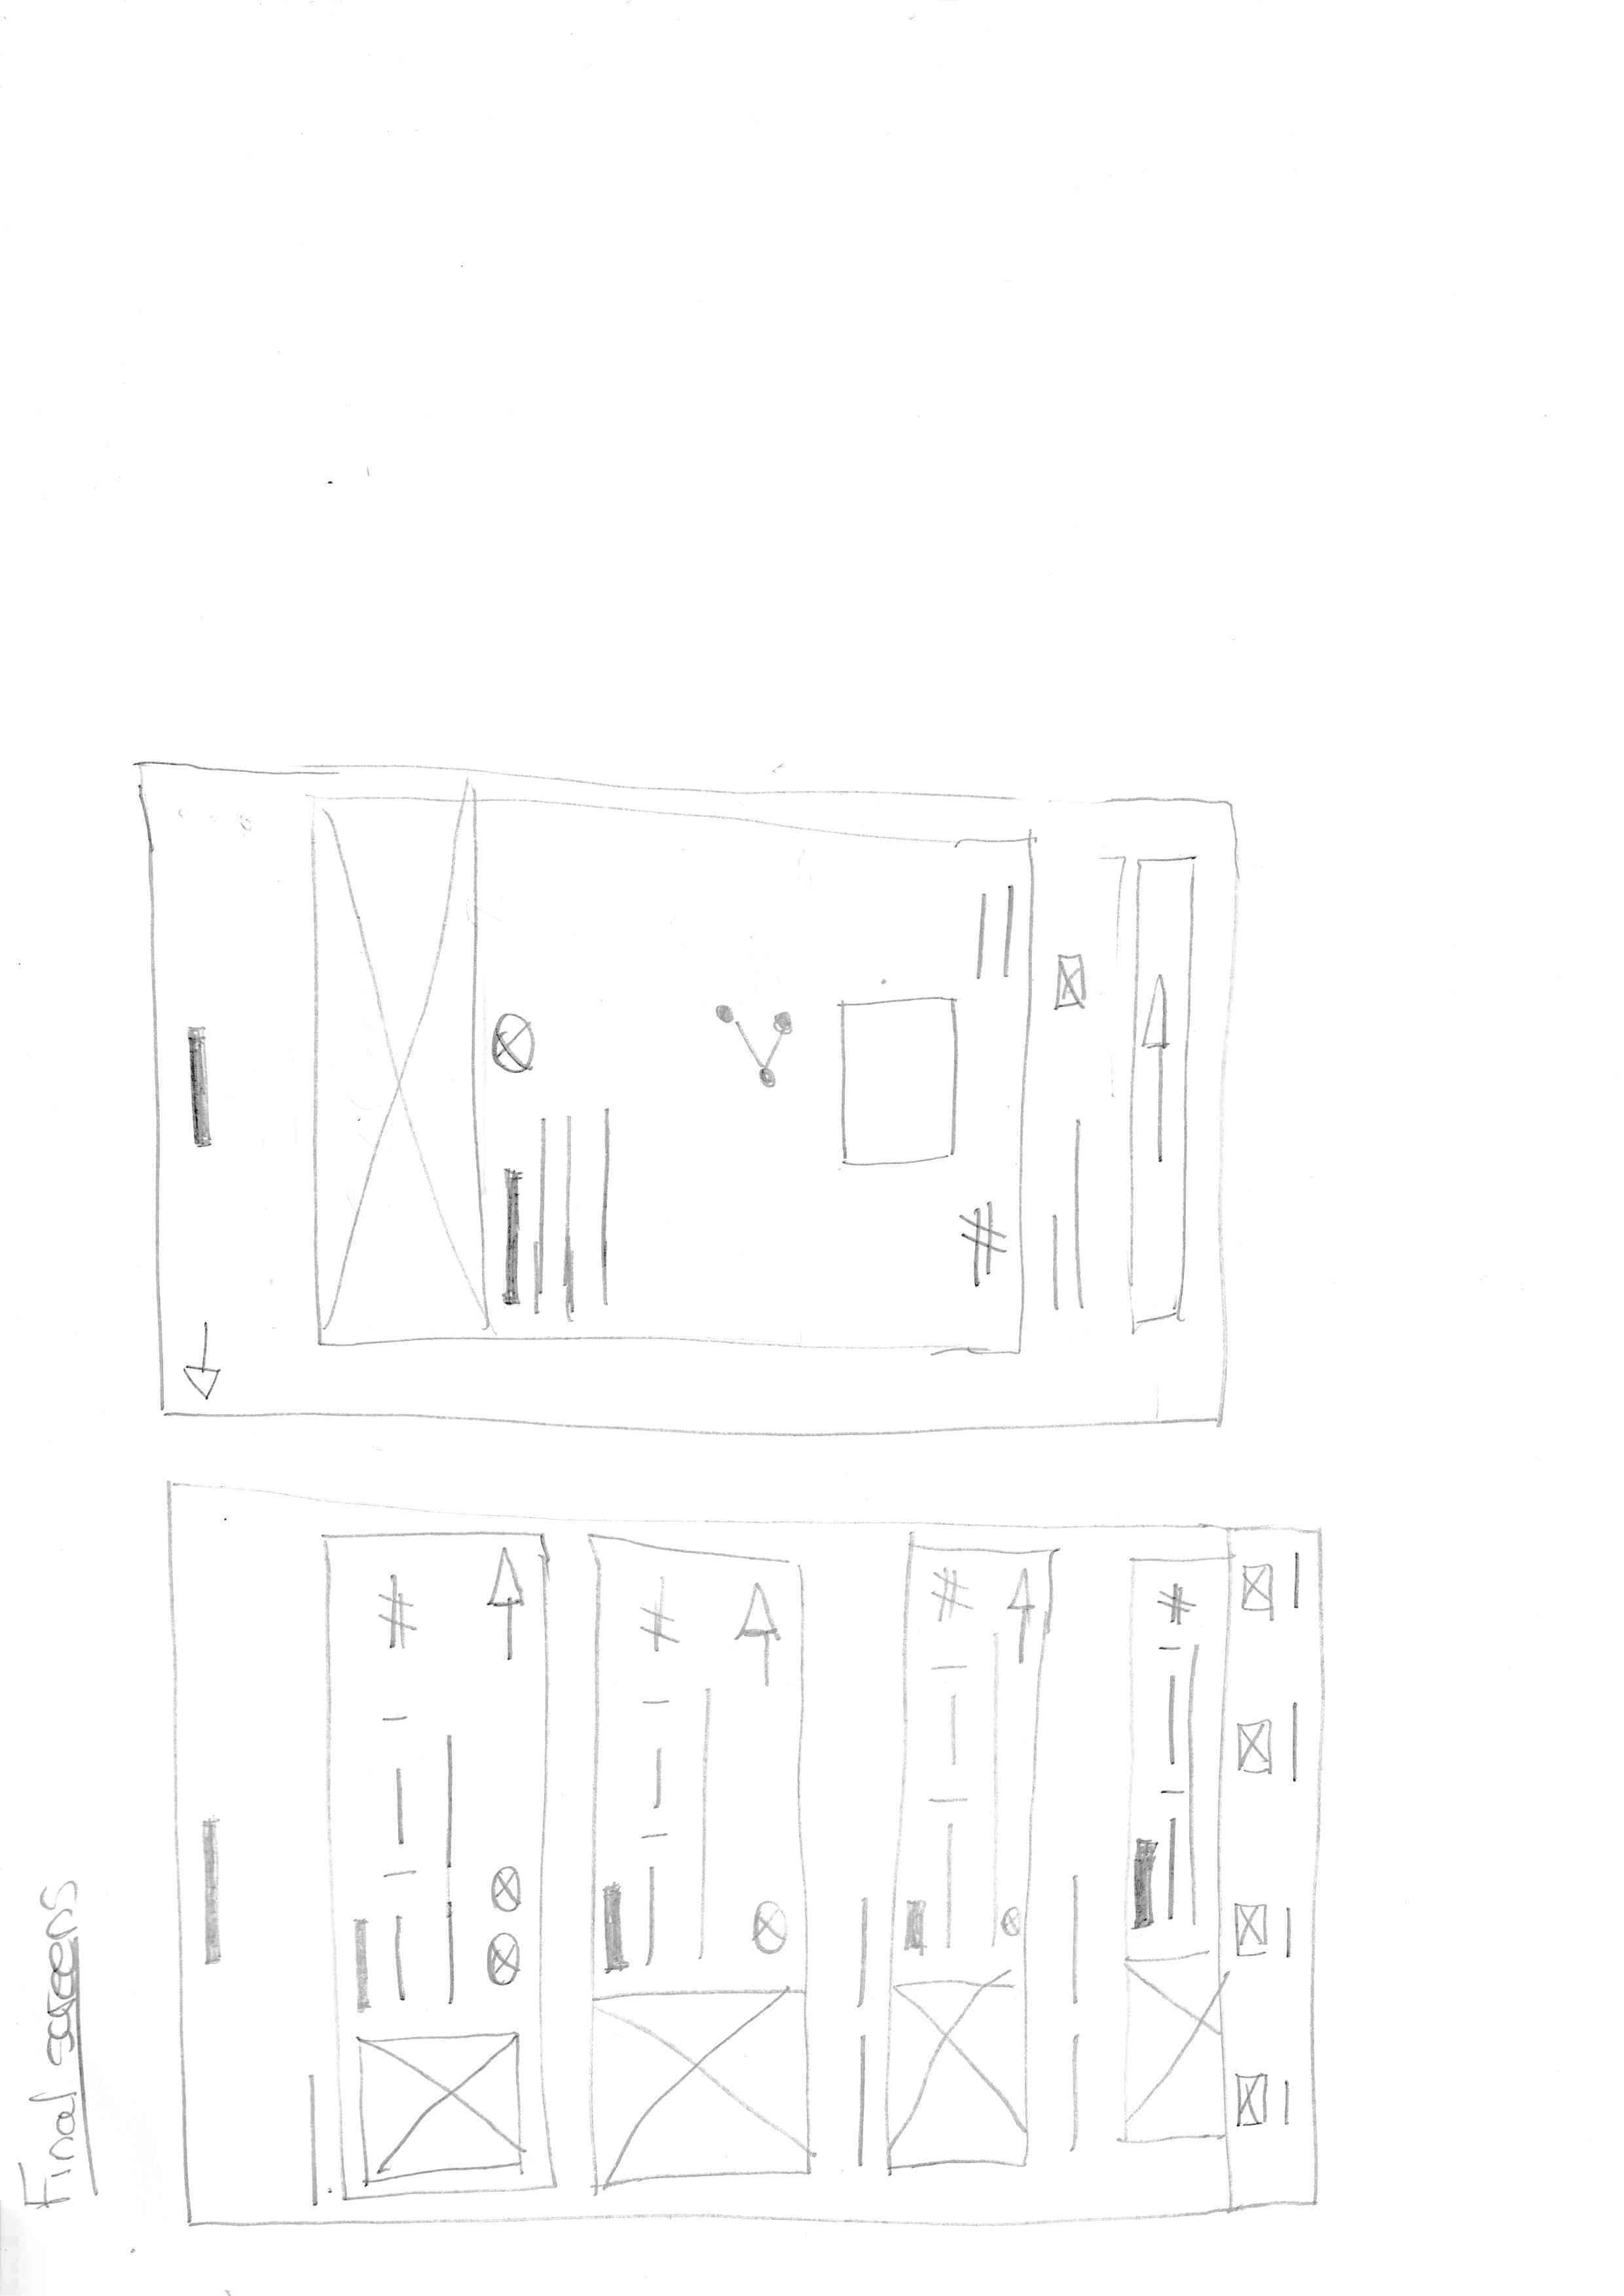 Final screens
#
#
#
#
#